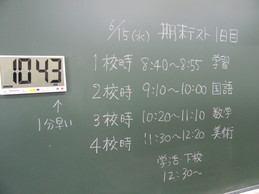 6/15(水) 期末テスト 1日目
10:43
↑
1分早い
1校時 8:40~8:55 学習
2校時 9:10~10:00 国語
3校時 10:20~11:10 数学
4校時 11:30~12:20 美術
学活 下校
12:30~